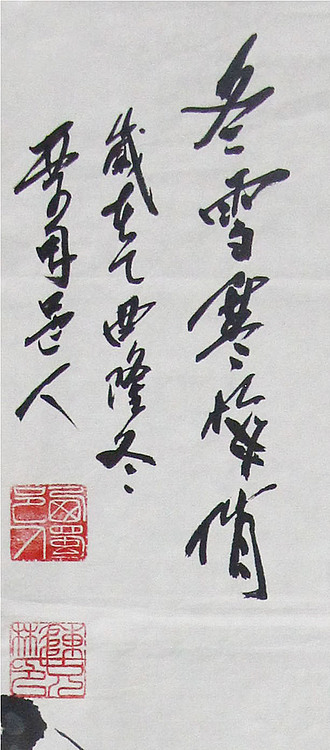 冬雪寒梅俏
歲在乙酉隆冬
邑人